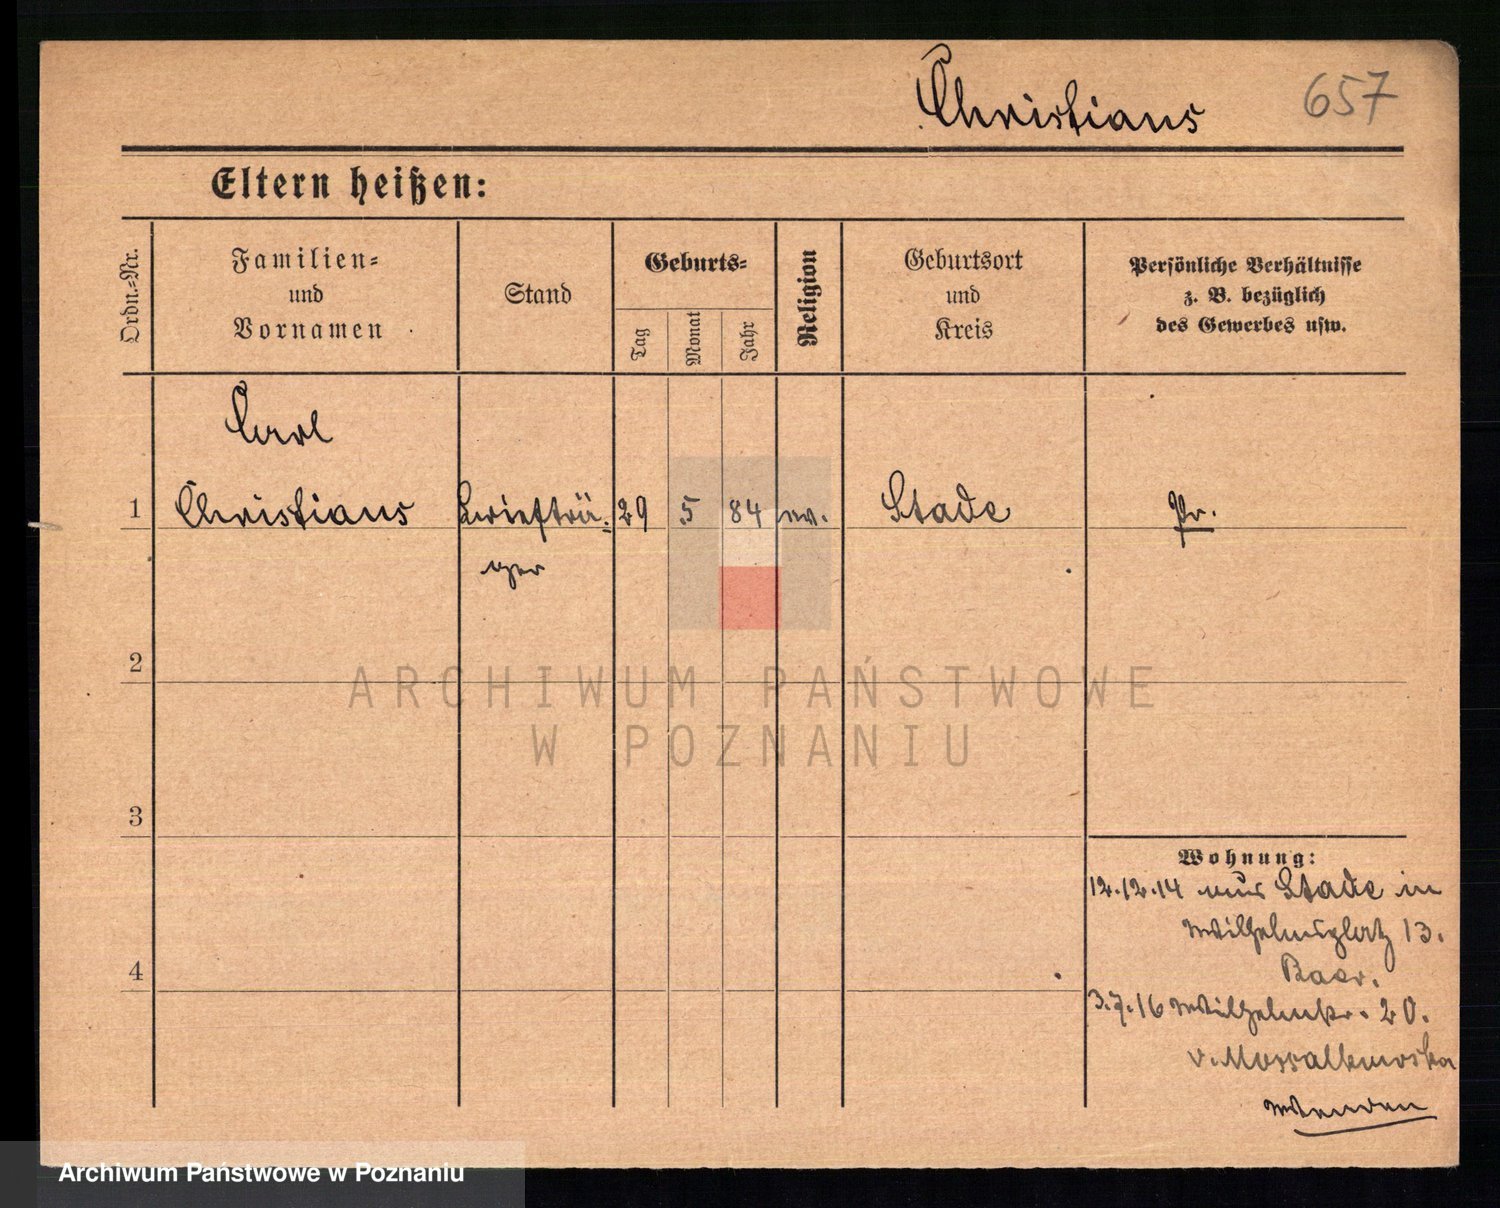 Christians 657
Eltern heißen:
Ordn.-Nr.
Familien-
und
Vornamen
Stand
Geburts-
Tag
Monat
Jahr
Religion
Geburtsort
und
Kreis
Persönliche Verhältnisse
z. B. bezüglich
des Gewerbes usw.
Carl
1 Christians Briefträ- 29 5 84 ev. Stade Pr.
ger
2
3
4
Wohnung:
12.12.14 aus Stade in
Wilhelmsplatz 13.
Baer.
3.7.16 Wilhelmstr. 20.
v. Mossalkowska
Wenden
ARCHIWUM PAŃSTWOWE
W POZNANIU
Archiwum Państwowe w Poznaniu